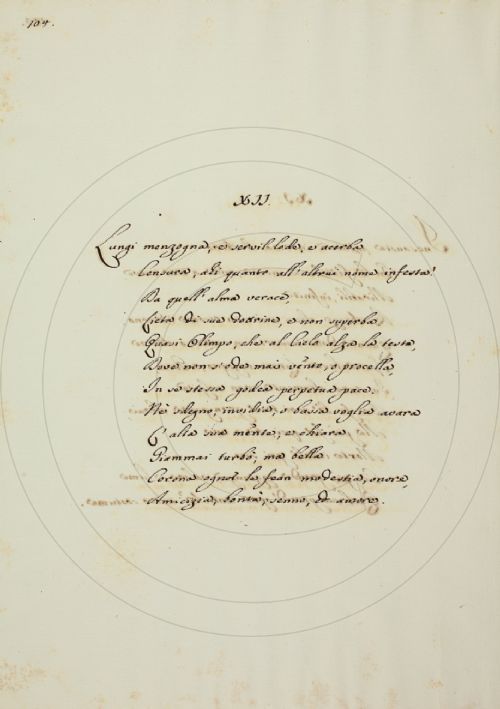 104.
XII.
Lungi menzogna, e servil lode, e acerba
Censura, ahi quanto all' altrui nome infesta!
Da quell' alma verace,
Lieta di sue dotrine, e non superba
Quasi Olimpo, che al Cielo alza la testa,
Dove non s'ode mai vento, o procella,
In se stessa godea perpetua pace.
Nè sdegno, invidia, o bassa voglia avara
L' alta sua mente, e chiara
Giammai turbò; ma bella
Corona ognor le fean modestia, onore,
Amicizia, bontà, senno, ed amore.